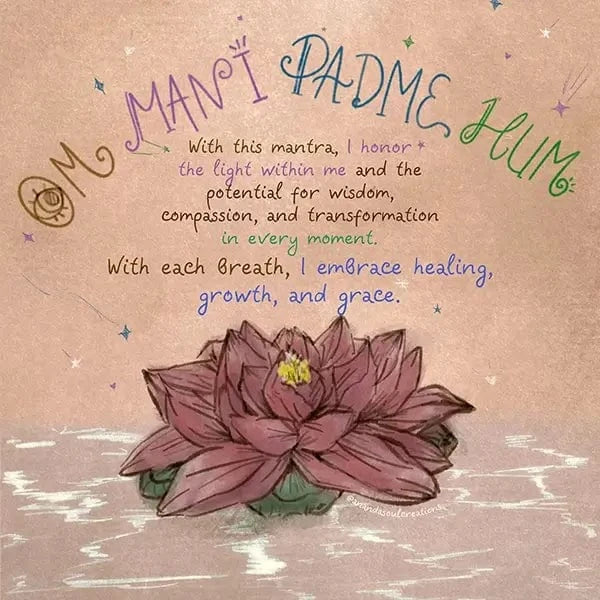 OM MANI PADME HUM
With this mantra, I honor
the light within me and the
potential for wisdom,
compassion, and transformation
in every moment.
With each Breath, I embrace healing,
growth, and grace.
@anandasoulcreations